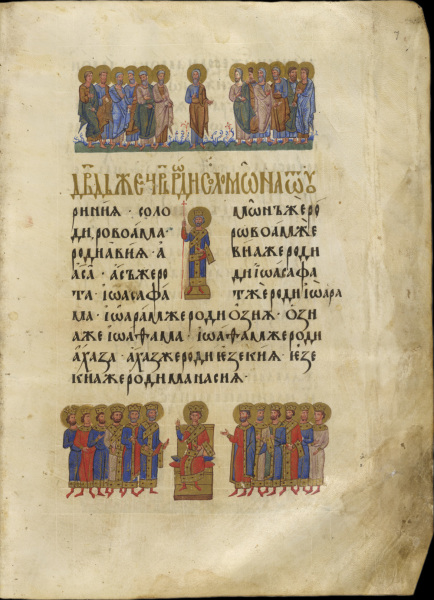 7
дв҃дь же цр҃ь роди соломѡна ѿ оу
риниѧ · соло мѡнъ же ро
ди ровоама · ровоам же
роди авиѧ · а виа же роди
аса · асъ же ро ди іѡасафа
та · іѡасафа тже роди іѡара
ма · іѡрам же роди озиѧ · ози
а же іѡафама · іѡафам же роди
ахаза · ахаз же роди іезекиѧ · іезе
киа же роди манасиѧ ·